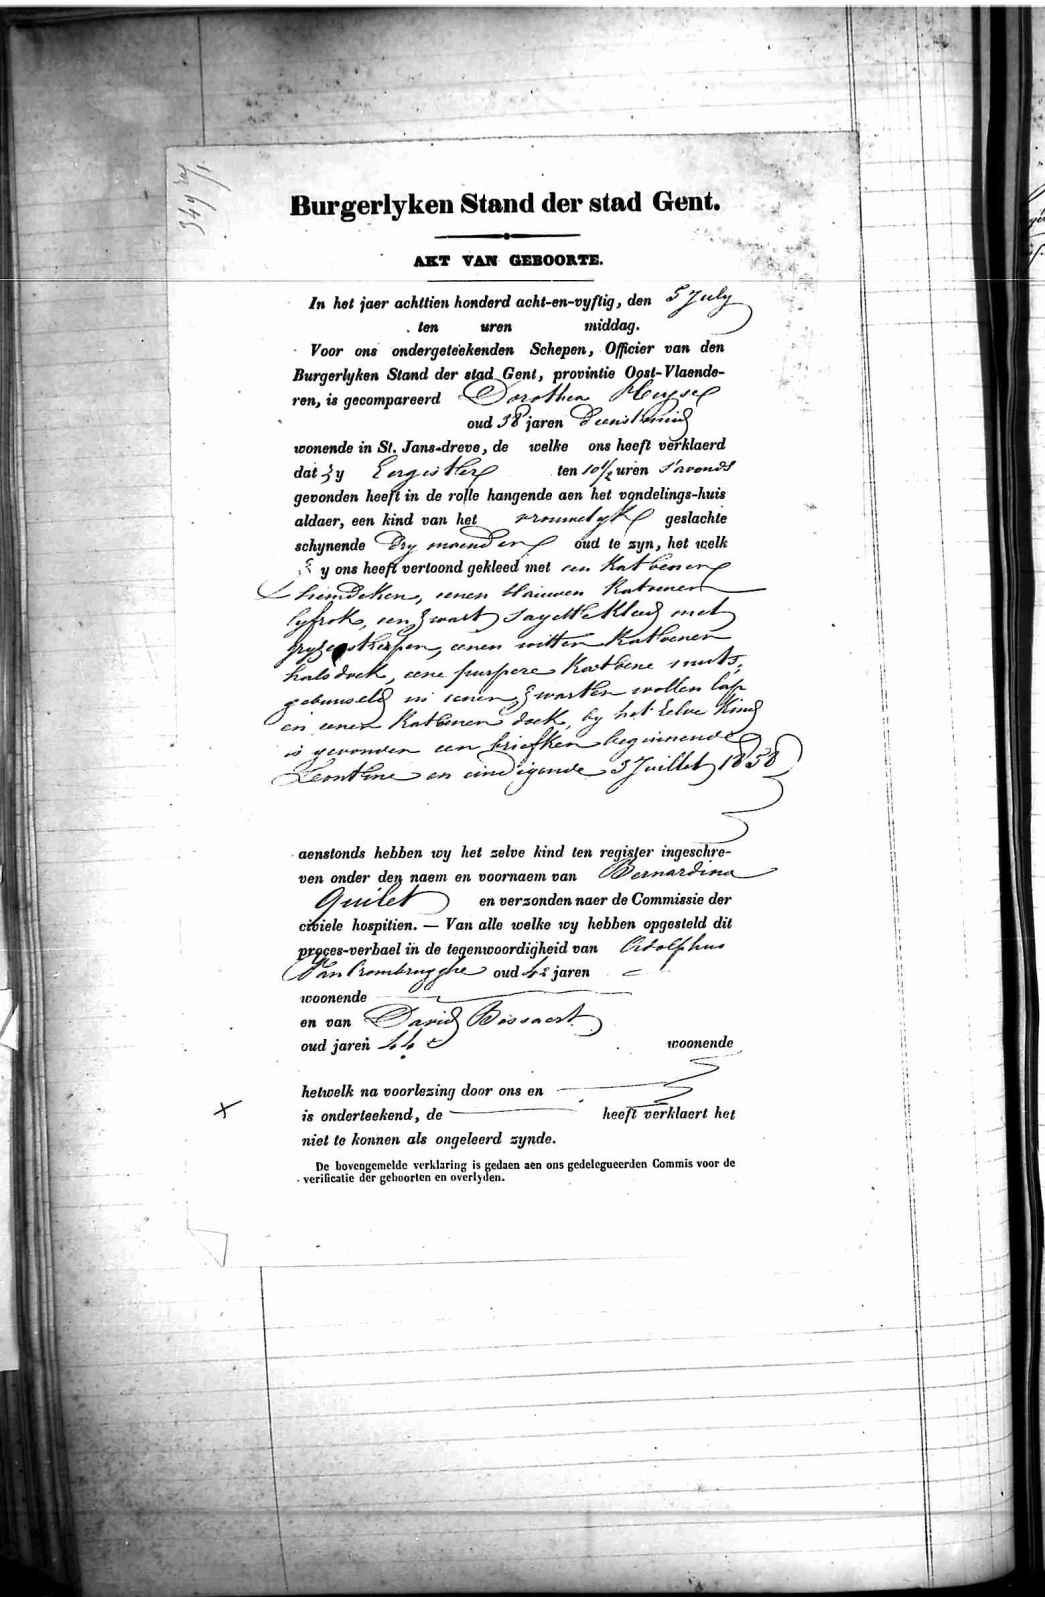 Burgerlyken Stand der stad Gent.
AKT VAN GEBOORTE.
In het jaer achttien honderd acht-en-vyftig, den 5 July
ten uren middag.
Voor ons ondergeteekenden Schepen, Officier van den
Burgerlyken Stand der stad Gent, provintie Oost-Vlaende-
ren, is gecompareerd Dorothea
oud 38 jaren Dienstmeid
wonende in St. Jans-dreve, de welke ons heeft verklaerd
dat zy Eergister ten 10 1/2 uren s'avonds
gevonden heeft in de rolle hangende aen het vondelings-huis
aldaer, een kind van het vrouwelyk geslachte
schynende dry maenden oud te zyn, het welk
zy ons heeft vertoond gekleed met een Katoenen
hemdeken, eenen blauwen Katoenen
lyfrok, een zwart Sayette Kleed met
eenen witten Katoenen
halsdoek, eene purpere Katoene muts,
gebunseld in eenen zwarten wollen lap
en eenen Katoenen doek, by het zelve Kind
is gevonden een briefken beginnende
Leontine en eindigende 3 Juillet 1858
aenstonds hebben wy het zelve kind ten register ingeschre-
ven onder den naem en voornaem van Bernardina
Quilet en verzonden naer de Commissie der
civiele hospitien. — Van alle welke wy hebben opgesteld dit
proces-verbael in de tegenwoordigheid van Adolphus
Van Crombrugghe oud 42 jaren
woonende
en van David Bossaert
oud jaren 44 woonende
hetwelk na voorlezing door ons en
is onderteekend, de heeft verklaert het
niet te konnen als ongeleerd zynde.
De bovengemelde verklaring is gedaen aen ons gedelegueerden Commis voor de
verificatie der geboorten en overlyden.